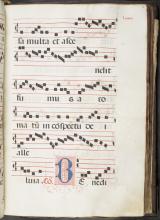 sa multa et asce
ndit
fu mus a ro
ma tū in cōspectu de i
alle
luia. Bene di